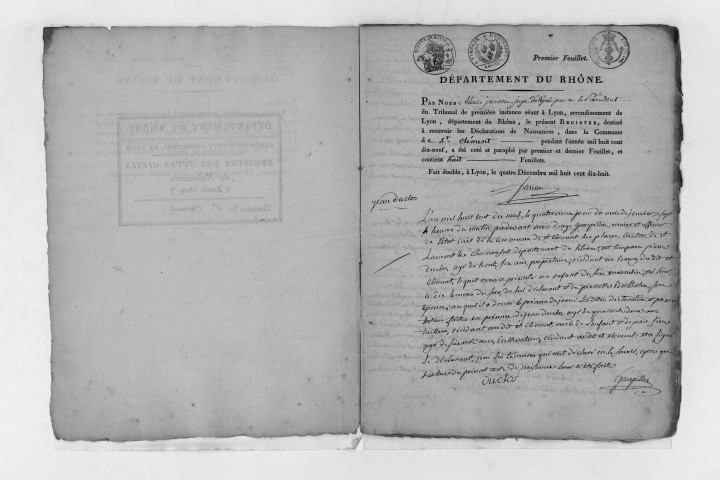 Premier Feuillet.
DÉPARTEMENT DU RHÔNE.
PAR NOUS Alexis Janson juge délégué par M. le Président
du Tribunal de première instance séant à Lyon, arrondissement de
Lyon, département du Rhône, le présent REGISTRE, destiné
à recevoir les Déclarations de Naissances, dans la Commune
de St. Clément pendant l'année mil huit cent
dix-neuf, a été coté et paraphé par premier et dernier Feuillet, et
contient huit Feuillets.
Fait double, à Lyon, le quatre Décembre mil huit cent dix-huit.
Janson
jean duclos
L'an mil huit cent dix neuf, le quatorzieme jour du mois de janvier a sept
heures du matin, pardevant nous Guerpillon, maire et officier
de l'état civil de la Commune de st Clement les places, Canton de st
Laurent de Chamousset département du Rhône, est comparu pierre
duclos, agé de trente six ans proprietaire, résidant au Bourg du dit st
Clement, lequel nous a présenté un enfant du sexe masculin, né hier
à dix heures du soir, de lui déclarant et de pierrette son
épouse, auquel il a donné le prénom de jean. Les dites déclaration et présen
tation faites en présence de jean duclos agé de quarante deux ans
résidant audit st Clement oncle de l'enfant et de jean
agé de soixante ans, Cultivateur, résidant audit st Clement, et a signé
le déclarant, non les témoins qui ont déclaré ne le savoir, après que
lecture du présent acte de naissance leur a été faite
duclos
Guerpillon